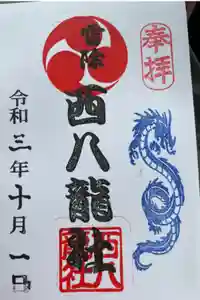 奉拝
雷除
西八龍社
西八龍社
令和三年十月一日